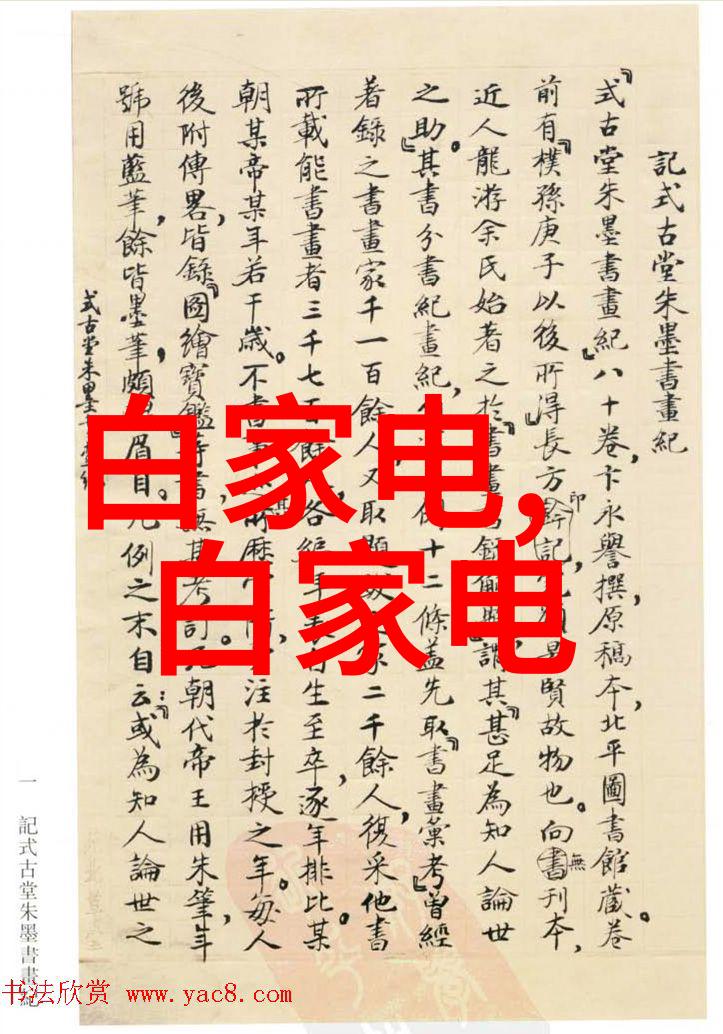 記式古堂朱墨書畫紀
『式古堂朱墨書畫紀』八十卷,卞永譽撰,原稿本,北平圖書館藏。卷
前有『樸孫庚子以後所得』長方印記,
賢故物也。向無刊本,
近人龍游余氏始著之於『書畫書錄解題』,謂其『甚足為知人論世
之助。』其書分書紀畫紀,
例十二條,蓋先取『書畫彙考』曾經
著錄之書畫家千一百餘人,又取題跋
家二千餘人,復采他書
所載能書畫者三千七百餘
各編年表,自生至卒,逐年排比。某
朝某帝某年若干歲。不書事
所歷官
注於封授之年。每人
後附傳畧,皆錄『圖繪寶鑑』等書,無甚考訂。凡朝代帝王用朱筆,年
號用藍筆,餘皆墨筆,頗
眉目。凡例之末自云:『或為知人論世之
式古堂朱墨書畫紀
白家电,
白家电
一
記式古堂朱墨書畫紀
书法欣赏 www.yac8.com